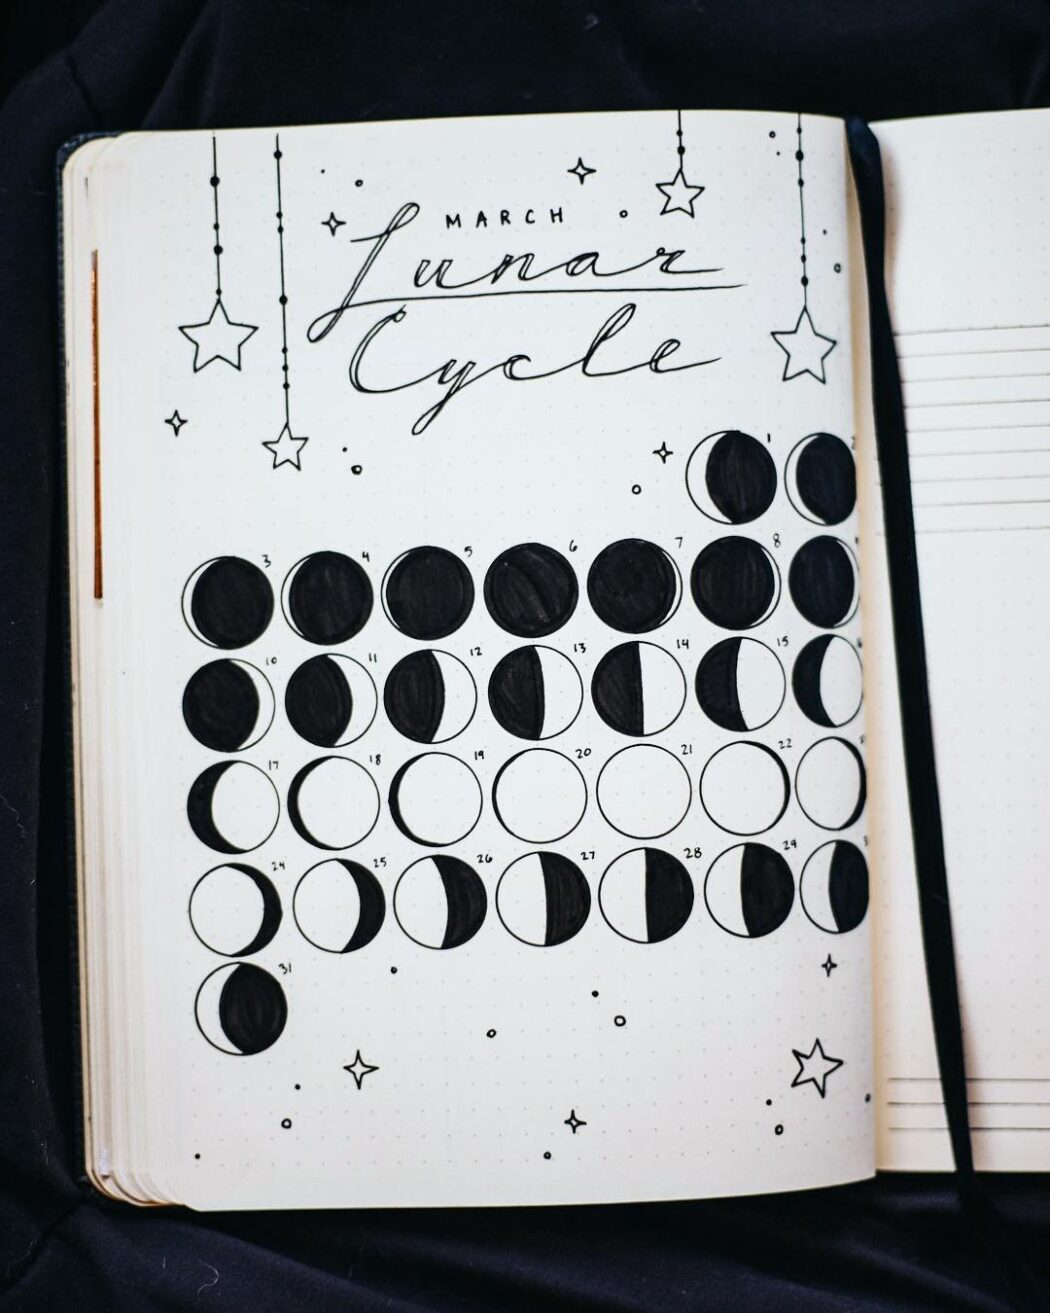 MARCH
Lunar
Cycle
1 2
3 4 5 6 7 8
10 11 12 13 14 15
17 18 19 20 21 22
24 25 26 27 28 29
31